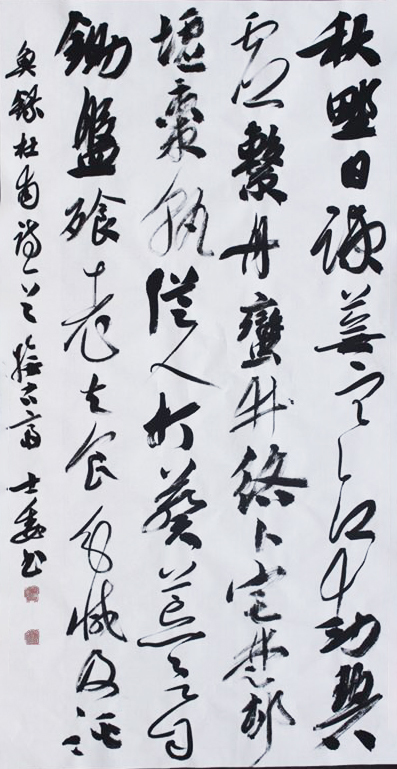 秋野日疎蕪寒江動碧
虛繫舟蠻井絡卜宅楚邨
墟棗熟從人打葵荒欲自
鋤盤飧老夫食分減及溪
魚錄杜甫詩一首士委书